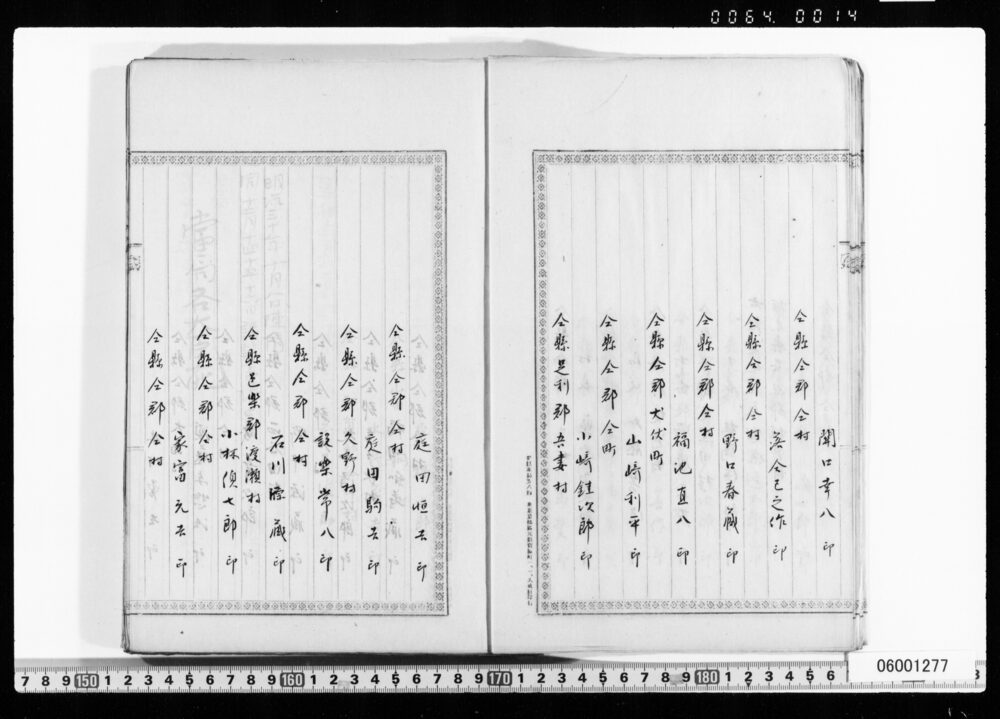 0064. 0014
關口幸八 印
仝縣仝郡仝村
落合己之作 印
仝縣仝郡仝村
野口春藏 印
仝縣仝郡仝村
福地直八 印
仝縣仝郡犬伏町
山崎利平 印
仝縣仝郡仝町
小崎銈次郎 印
仝縣足利郡吾妻村
庭田恒吉 印
仝縣仝郡仝村
庭田駒吉 印
仝縣仝郡久野村
設樂常八 印
仝縣仝郡仝村
石川 藏 印
仝縣邑樂郡渡瀬村
小林偵七郎 印
仝縣仝郡仝村
家富元吉 印
仝縣仝郡仝村
7 8 9 150 1 2 3 4 5 6 7 8 9 160 1 2 3 4 5 6 7 8 9 170 1 2 3 4 5 6 7 8 9 180 1 2 3 4 5 6
06001277